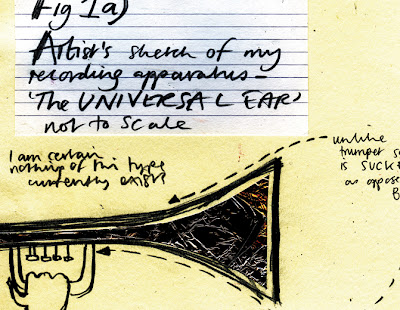 Fig 1a)
Artist's sketch of my
recording apparatus -
'The UNIVERSAL EAR'
not to scale
I am certain
nothing of this type
currently exists
unlike
trumpet
is SUCK
as oppose